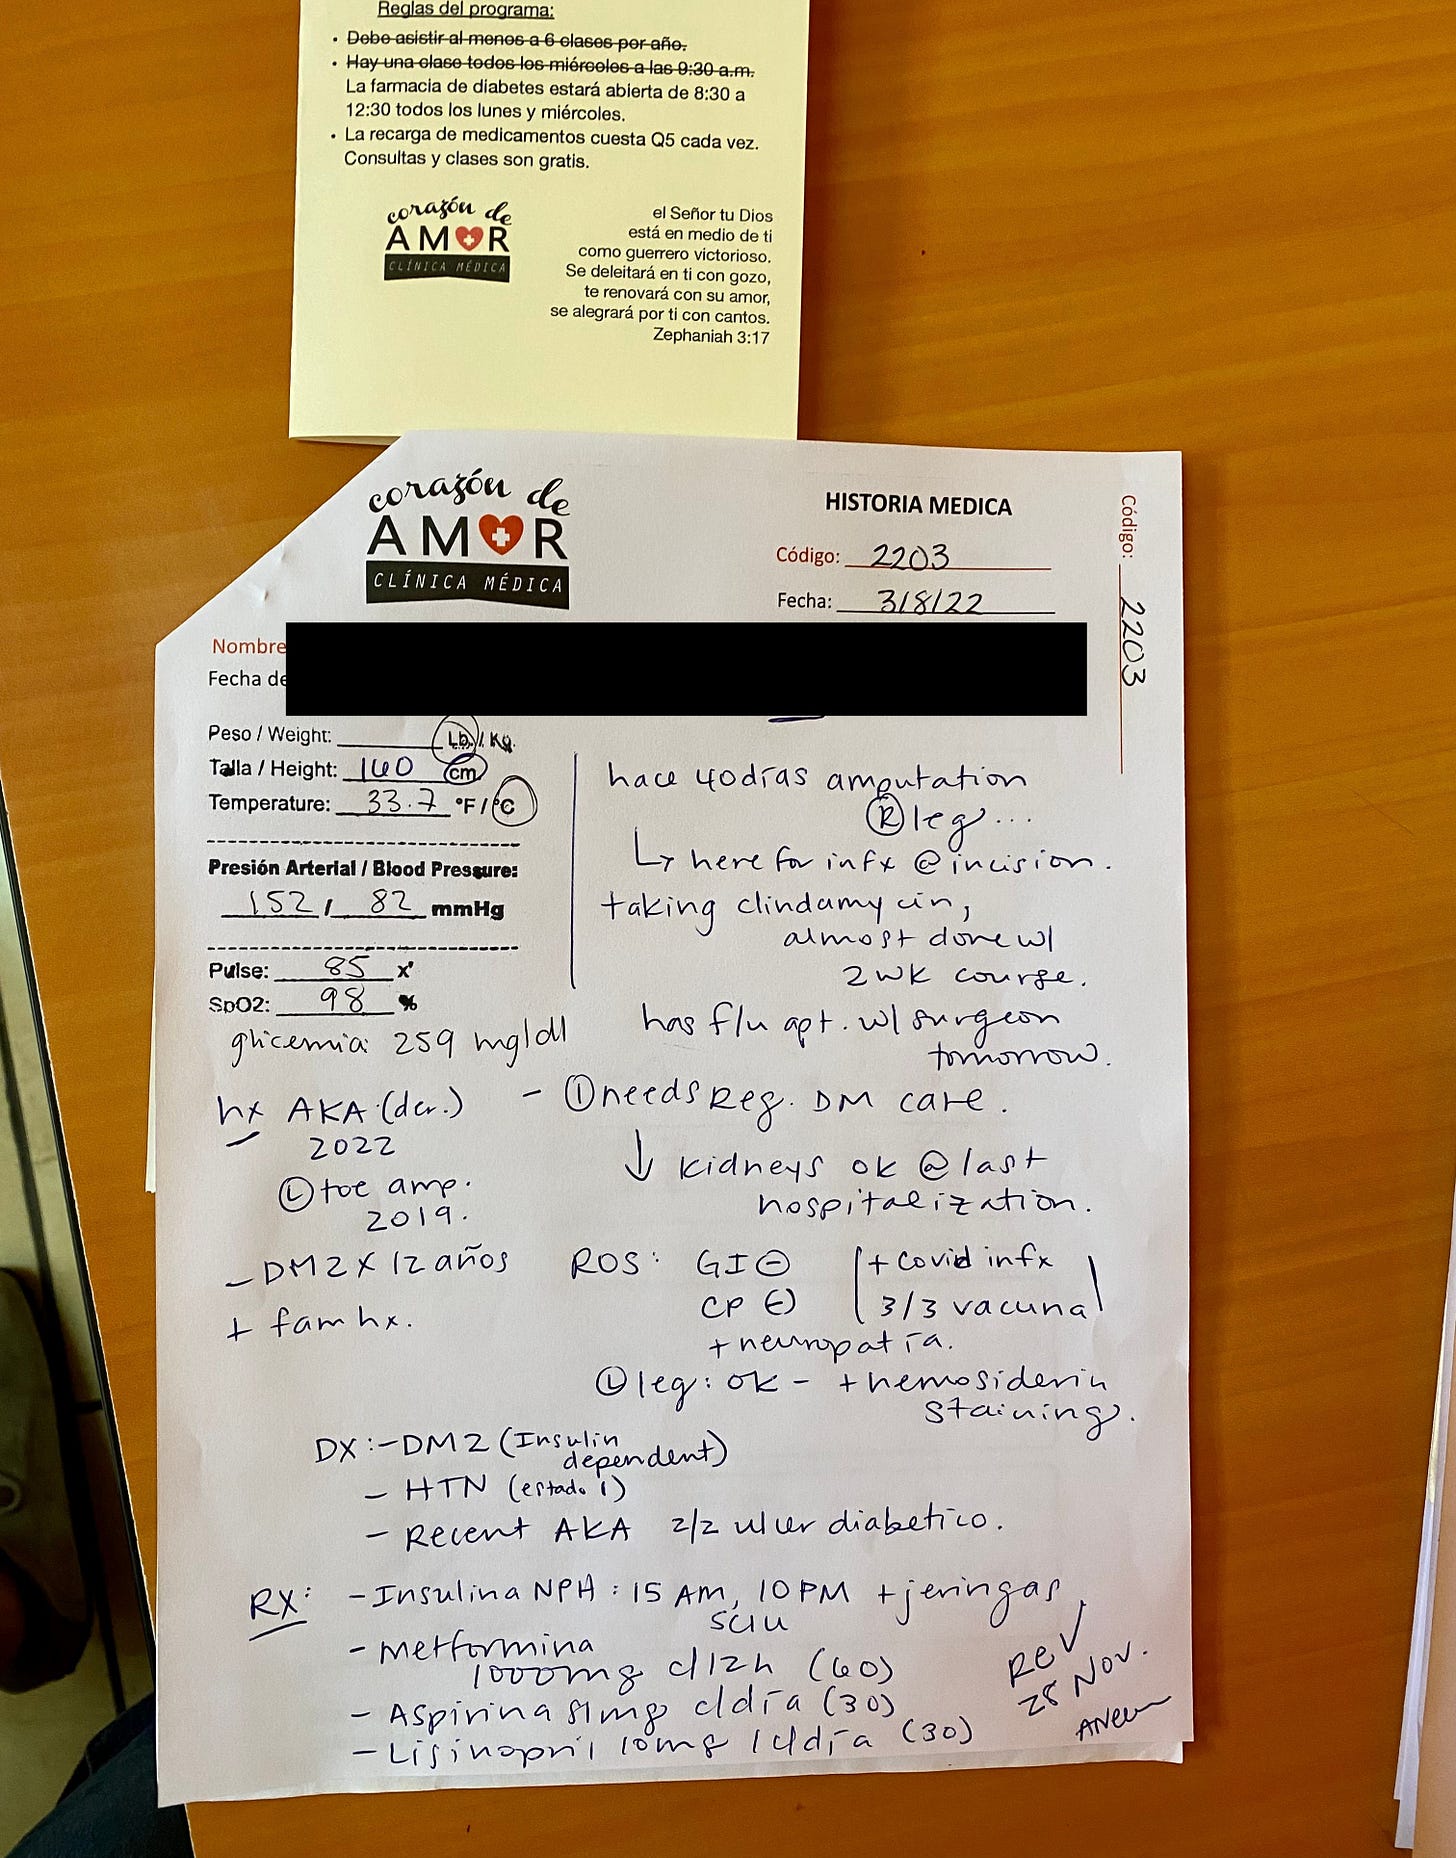 Reglas del programa:
• Debe asistir al menos a 6 clases por año.
• Hay una clase todos los miércoles a las 9:30 a.m.
La farmacia de diabetes estará abierta de 8:30 a
12:30 todos los lunes y miércoles.
• La recarga de medicamentos cuesta Q5 cada vez.
Consultas y clases son gratis.
corazón de
AMOR
CLÍNICA MÉDICA
el Señor tu Dios
está en medio de ti
como guerrero victorioso.
Se deleitará en ti con gozo,
te renovará con su amor,
se alegrará por ti con cantos.
Zephaniah 3:17
corazón de
AMOR
CLÍNICA MÉDICA
HISTORIA MEDICA
Código: 2203
Fecha: 3/8/22
Código: 2203
Nombre
Fecha de
Peso / Weight: Lb. / Kg.
Talla / Height: 160 cm
Temperature: 33.7 °F / °C
Presión Arterial / Blood Pressure:
152 / 82 mmHg
Pulse: 85 x'
SpO2: 98 %
glicemia: 259 mg/dl
hace 40 días amputation
Ⓡ leg...
↳ here for infx @ incision.
taking clindamycin,
almost done w/
2 wk course.
has f/u apt. w/ surgeon
tomorrow.
hx AKA (der.)
2022
Ⓛ toe amp.
2019.
- DM2 x 12 años
+ fam hx.
- ① needs Reg. DM care.
↓ kidneys ok @ last
hospitalization.
ROS: GI ⊖
CP ⊖
+ neuropatía.
+ covid infx
3/3 vacuna
Ⓛ leg: ok - + hemosiderin
staining.
DX: - DM2 (Insulin
dependent)
- HTN (estado 1)
- Recent AKA 2/2 ulcer diabetico.
RX: - Insulina NPH: 15 AM, 10 PM + jeringas
SC IU
- metformina
1000mg c/12h (60)
- Aspirina 81mg c/día (30)
- Lisinopril 10mg 1 c/día (30)
REV ✓
28 Nov.